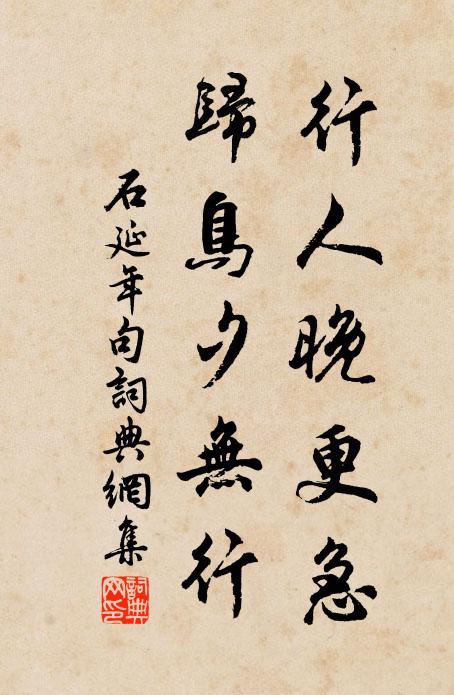 行人晚更急
歸鳥夕無行
石延年句詞典網集
詞典網印